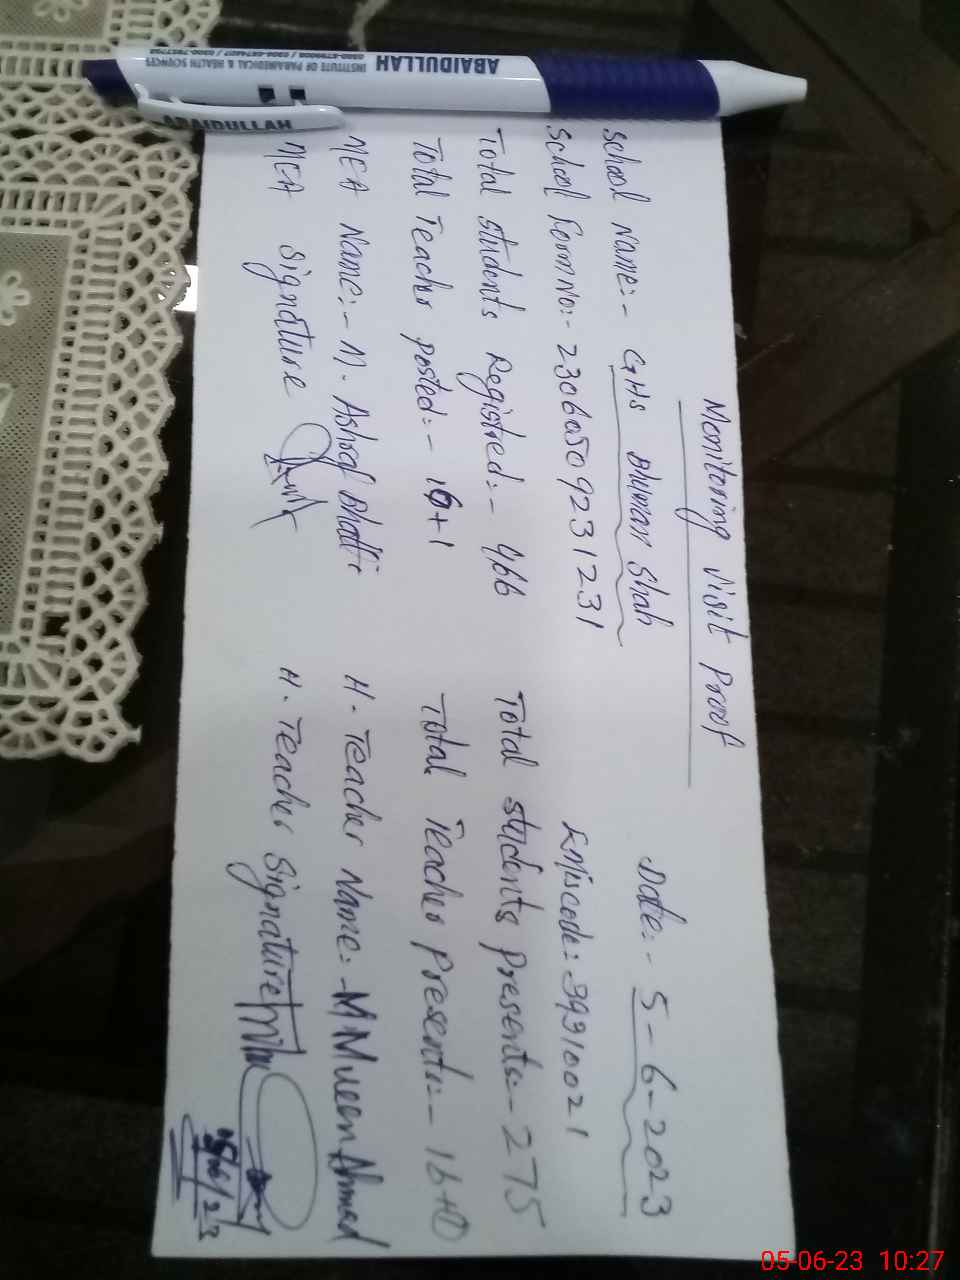 Monitoring Visit Proof
Date:- 5-6-2023
School Name:- GHS Bhuman Shah
School Form No:- 23060509231231 Emiscode: 39910021
Total students Registred:- 466 Total students Presents:- 275
Total Teacher Posted:- 16+1 Total Teacher Presents:- 16+0
MEA Name:- M. Ashraf Bhatti H. Teacher Name:- M Mueen Ahmed
MEA Signature H. Teacher Signature
5/06/23
ABAIDULLAH
INSTITUTE OF PARAMEDICAL & HEALTH SCIENCES
ABAIDULLAH
05-06-23 10:27